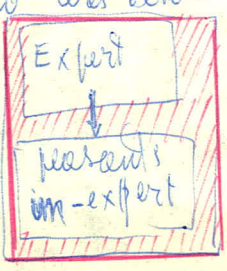 was
Expert
peasants
in-expert